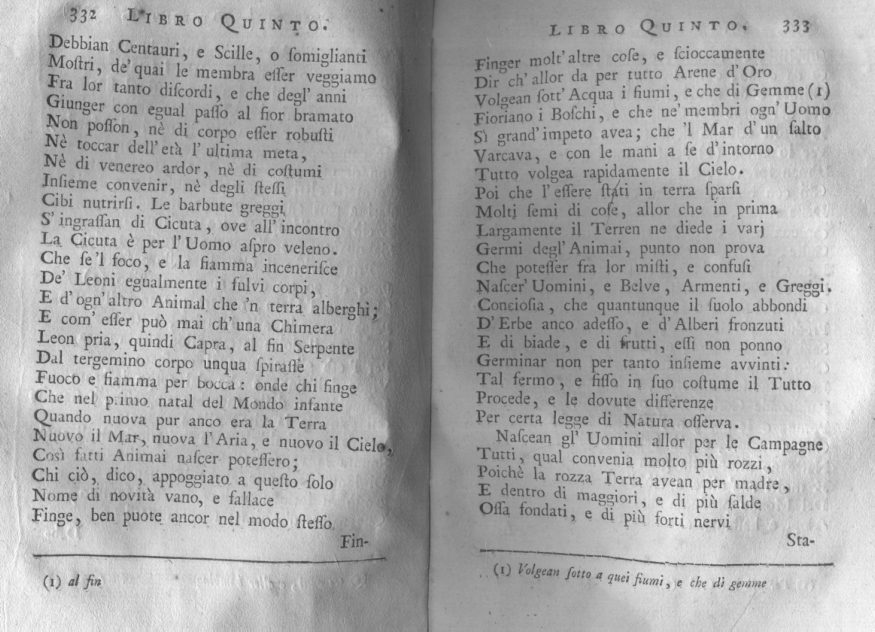 332 LIBRO QUINTO.
Debbian Centauri, e Scille, o ſomiglianti
Moſtri, de' quai le membra eſſer veggiamo
Fra lor tanto diſcordi, e che degl' anni
Giunger con egual paſſo al fior bramato
Non poſſon, nè di corpo eſſer robuſti
Nè toccar dell'età l'ultima meta,
Nè di venereo ardor, nè di coſtumi
Inſieme convenir, nè degli ſteſſi
Cibi nutrirſi. Le barbute greggi
S'ingraſſan di Cicuta, ove all'incontro
La Cicuta è per l'Uomo aſpro veleno.
Che ſe 'l foco, e la fiamma inceneriſce
De' Leoni egualmente i fulvi corpi,
E d'ogn'altro Animal che 'n terra alberghi;
E com' eſſer può mai ch'una Chimera
Leon pria, quindi Capra, al fin Serpente
Dal tergemino corpo unqua ſpiraſſe
Fuoco e fiamma per bocca: onde chi finge
Che nel primo natal del Mondo infante
Quando nuova pur anco era la Terra
Nuovo il Mar, nuova l'Aria, e nuovo il Cielo,
Così fatti Animai naſcer poteſſero;
Chi ciò, dico, appoggiato a queſto ſolo
Nome di novità vano, e fallace
Finge, ben puote ancor nel modo ſteſſo
Fin-
(1) al fin
LIBRO QUINTO. 333
Finger molt'altre coſe, e ſcioccamente
Dir ch'allor da per tutto Arene d'Oro
Volgean ſott'Acqua i fiumi, e che di Gemme (1)
Fioriano i Boſchi, e che ne' membri ogn'Uomo
Sì grand'impeto avea; che 'l Mar d'un ſalto
Varcava, e con le mani a ſe d'intorno
Tutto volgea rapidamente il Cielo.
Poi che l'eſſere ſtati in terra ſparſi
Molti ſemi di coſe, allor che in prima
Largamente il Terren ne diede i varj
Germi degl'Animai, punto non prova
Che poteſſer fra lor miſti, e confuſi
Naſcer' Uomini, e Belve, Armenti, e Greggi.
Concioſia, che quantunque il ſuolo abbondi
D'Erbe anco adeſſo, e d'Alberi fronzuti
E di biade, e di frutti, eſſi non ponno
Germinar non per tanto inſieme avvinti:
Tal fermo, e fiſſo in ſuo coſtume il Tutto
Procede, e le dovute differenze
Per certa legge di Natura oſſerva.
Naſcean gl' Uomini allor per le Campagne
Tutti, qual convenia molto più rozzi,
Poichè la rozza Terra avean per madre,
E dentro di maggiori, e di più ſalde
Oſſa fondati, e di più forti nervi
Sta-
(1) Volgean ſotto a quei fiumi, e che di gemme